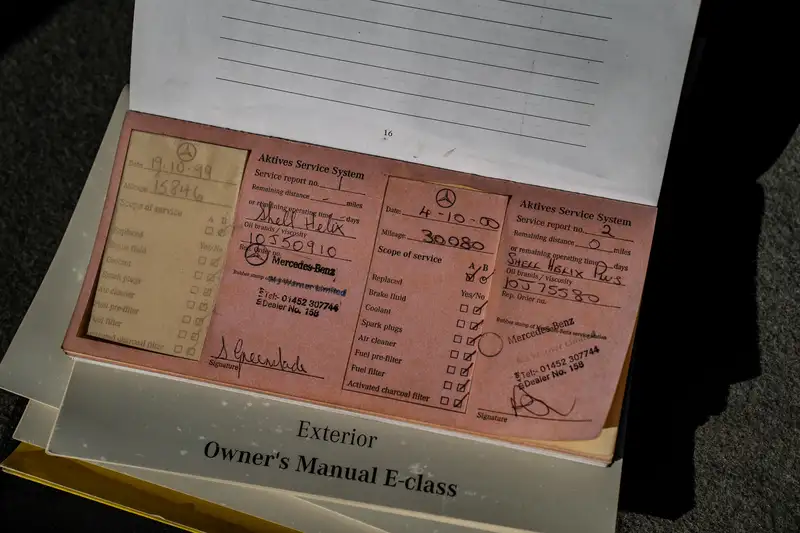 16
Date 19.10-99
Mileage 15846
Scope of service
A B
Replaced
Yes/No
Brake fluid
Coolant
Spark plugs
Air cleaner
Fuel pre-filter
Fuel filter
Activated charcoal filter
Aktives Service System
Service report no. 1
Remaining distance - miles
or remaining operating time - days
Shell Helix
Oil brands / viscosity
10J50910
Rep. Order no.
Mercedes-Benz
Limited
Tel:- 01452 307744
Dealer No. 158
S Greenslade
Signature
Date 4-10-00
Mileage 30080
Scope of service
A B
Replaced
Yes/No
Brake fluid
Coolant
Spark plugs
Air cleaner
Fuel pre-filter
Fuel filter
Activated charcoal filter
Aktives Service System
Service report no. 2
Remaining distance 0 miles
or remaining operating time days
SHELL HELIX PLUS
Oil brands / viscosity
10J75580
Rep. Order no.
Mercedes-Benz
Tel:- 01452 307744
Dealer No. 158
Signature
Exterior
Owner's Manual E-class